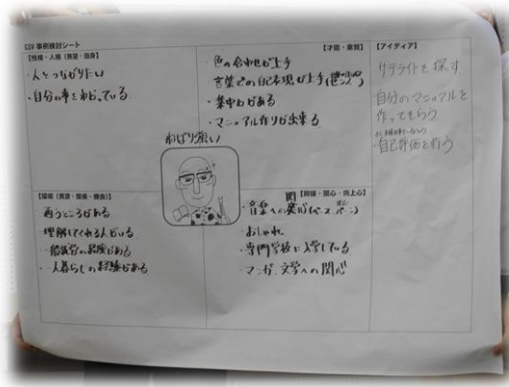 GSV 事例検討シート
【性格・人格(資質・自身)】
・人とつながりたい
・自分の事をわかっている
【才能・素質】
・色の合わせが上手
言葉での自己表現が上手
・集中力がある
・マニュアル作りが出来る
【アイディア】
サテライトを探す
自分のマニュアルを
作ってもらう
・自己評価を行う
ねばり強い
【環境(資源・関係・機会)】
通うところがある
理解してくれる人がいる
一人暮らしの経験がある
【興味・関心・向上心】
・音楽への関心
・おしゃれ
・専門学校に入学している
・マンガ、文学への関心